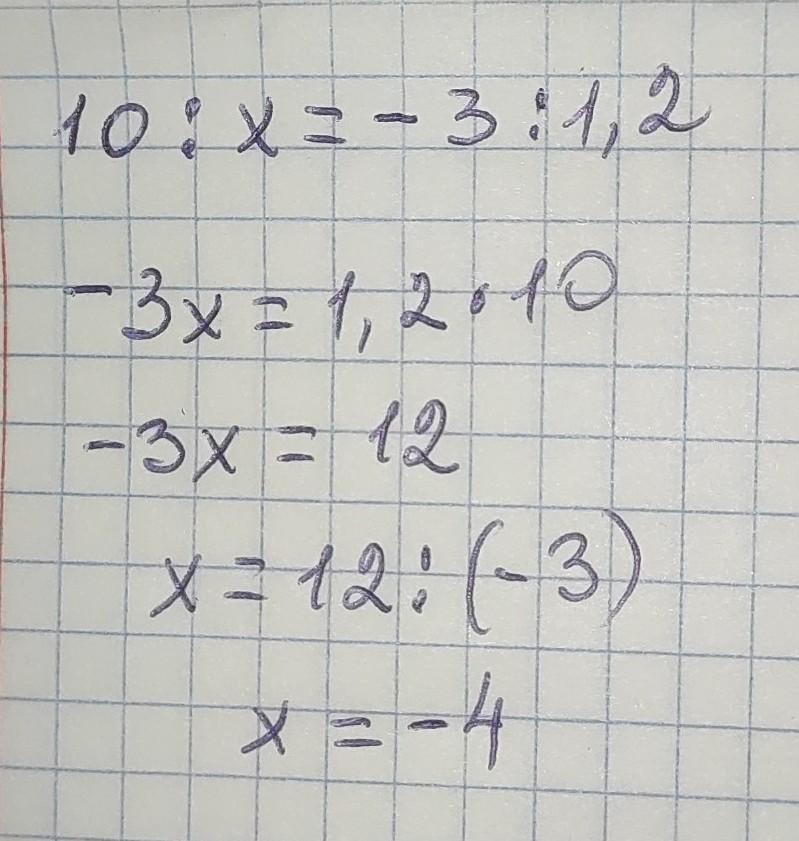 10 : x = - 3 : 1,2
-3x = 1,2 · 10
-3x = 12
x = 12 : (-3)
x = -4